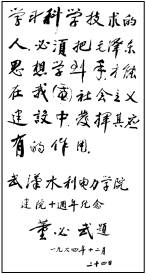 学习科学技术的
人，必须把毛泽东
思想学到手，才能
在我国社会主义
建设中，发挥其应
有的作用。
武汉水利电力学院
建院十週年纪念
董必武题
一九六四年十二月
二十四日